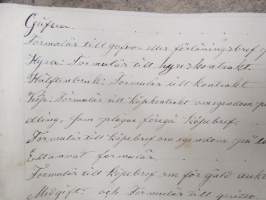 Gåfva.
Formulär till gåfvo- eller förläningsbref
Hyra: Formulär till hyreskontrakt.
Hälftenbruk: Formulär till kontrakt
Köp: Formulär till köpekontrakt
dling, som plägar föregå köpebref.
Formulär till köpebref om egendom på
Ett annat formulär.
Formulär till köpebref om för gäld
Medgift och Formulär till